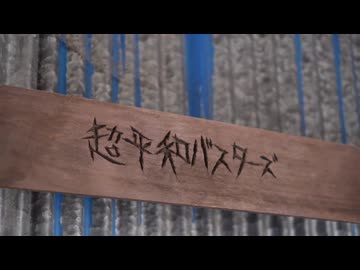 超平和バスターズ